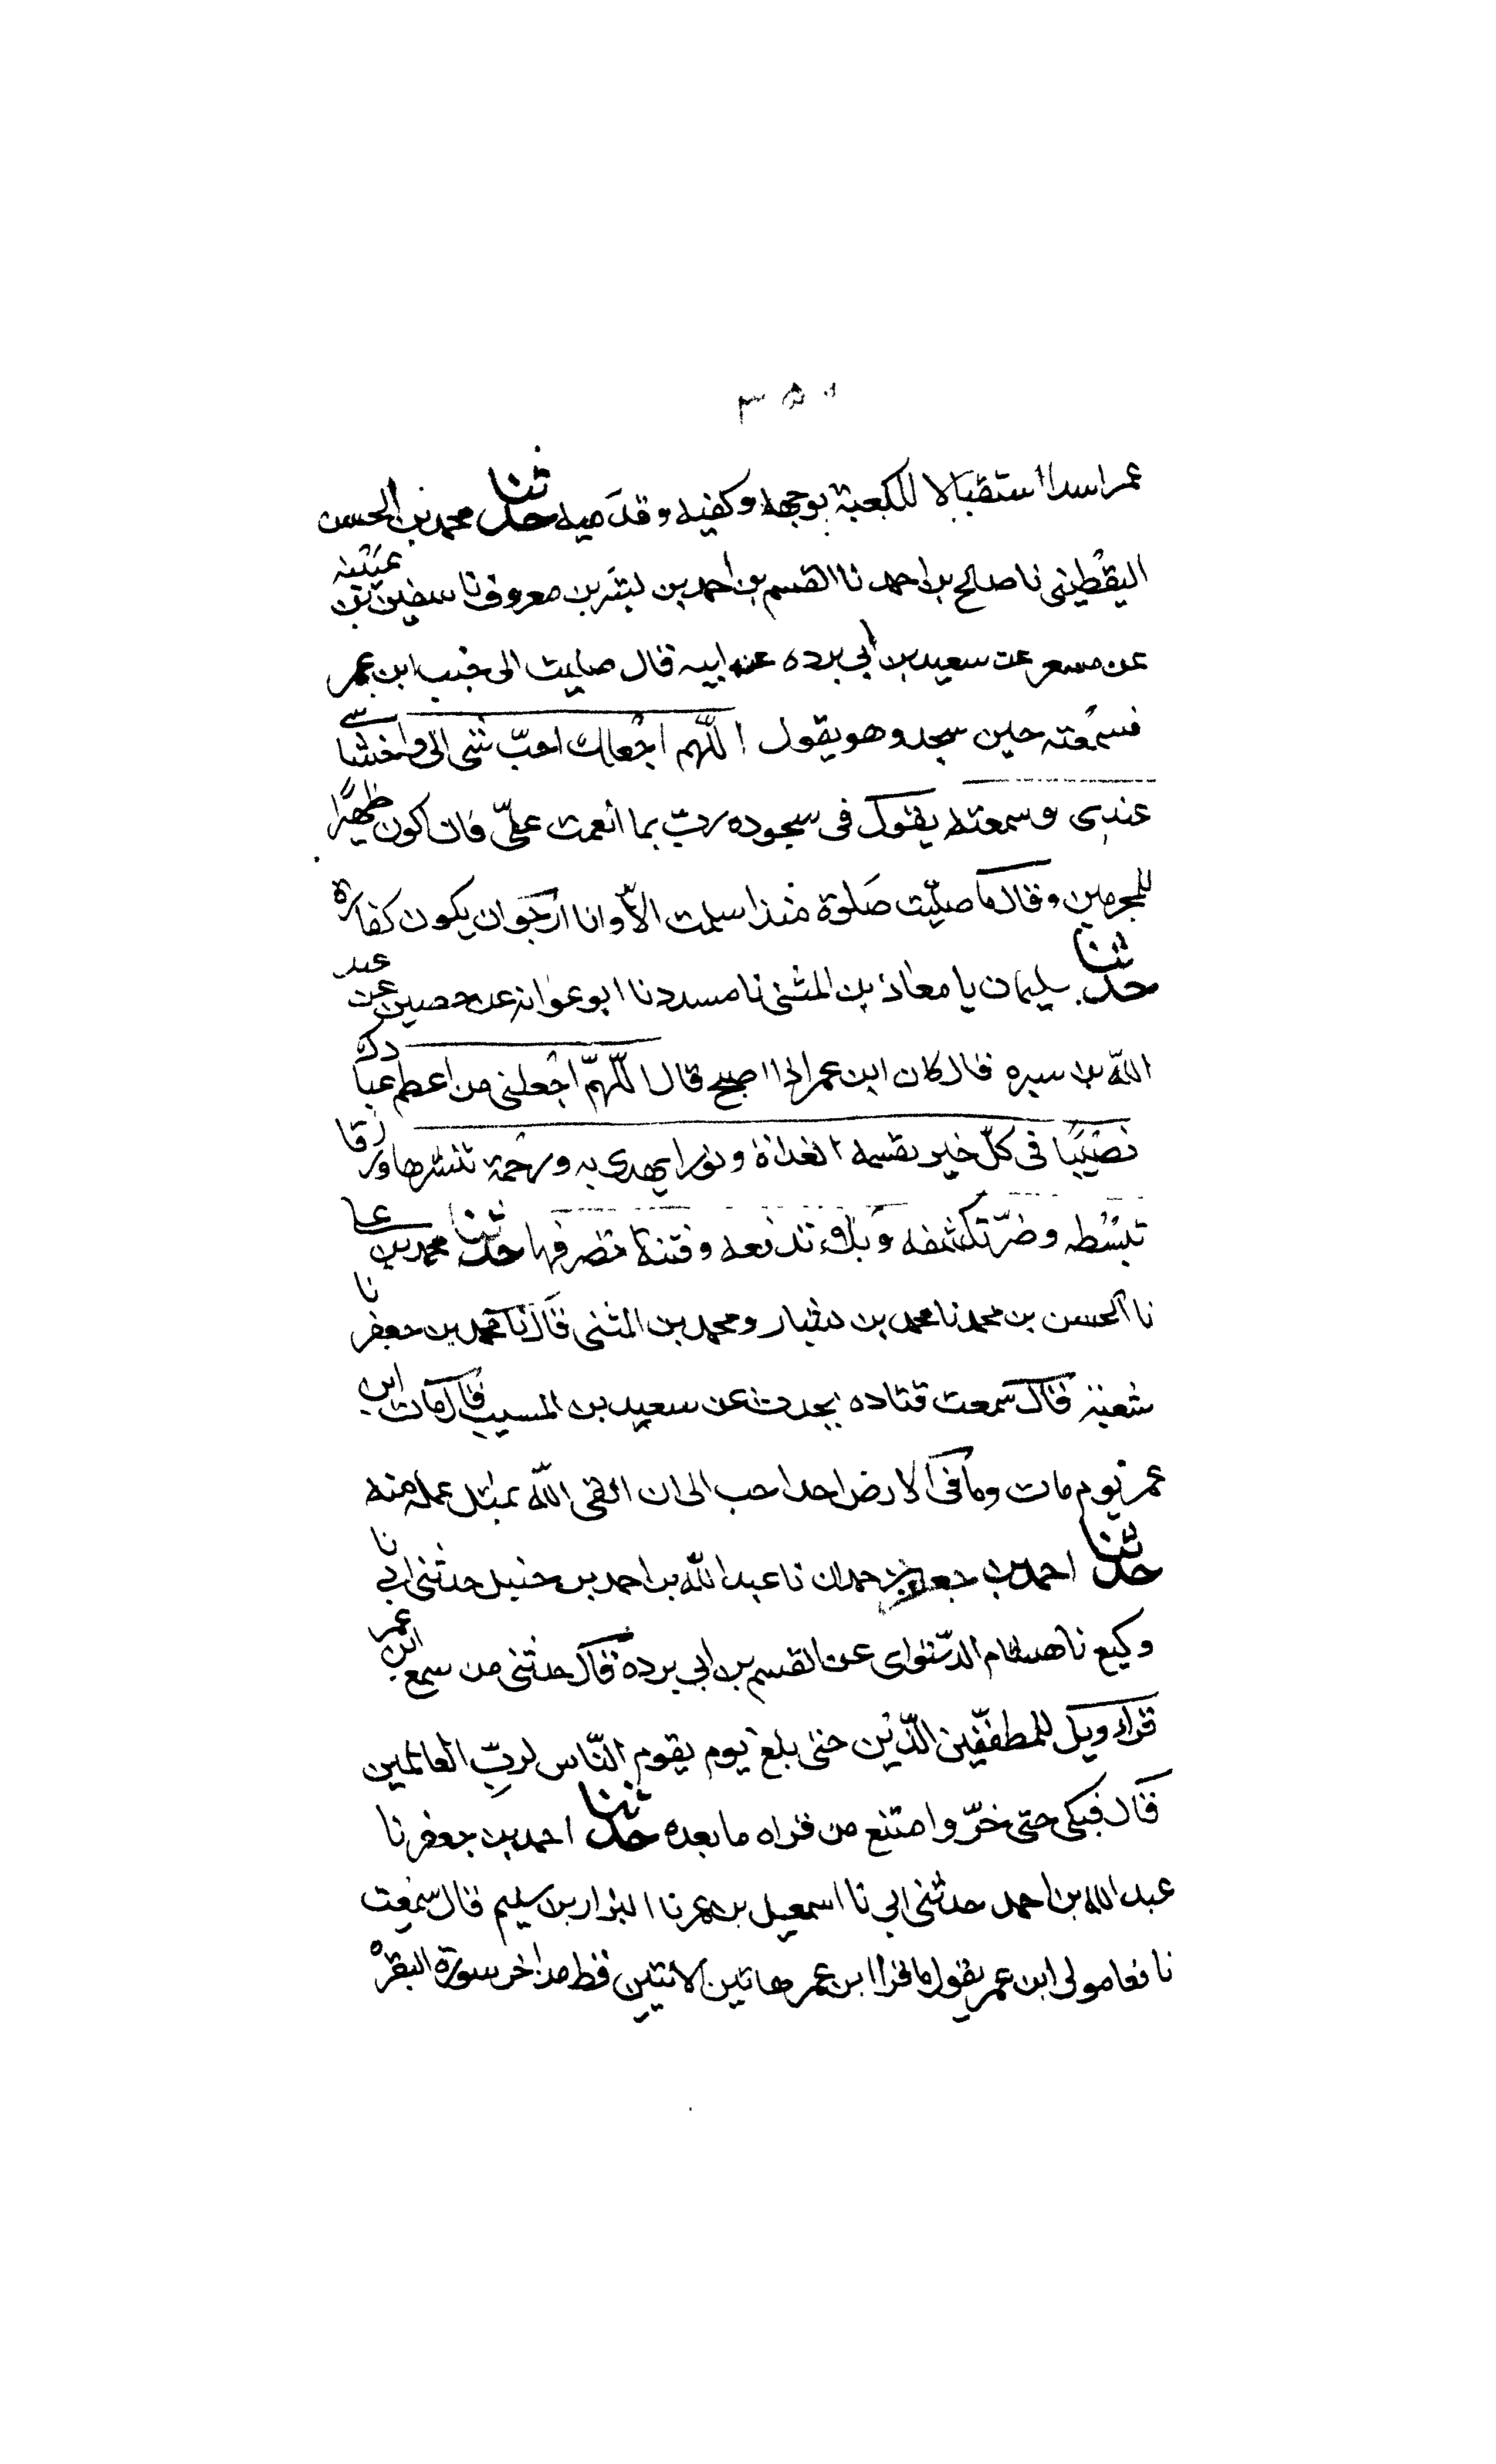 ٣٥٠
عمر اسدا استقبالا للكعبة بوجهه وكفيه وقدميه حدثنا محمد بن الحسن
اليقطيني نا صالح بن احمد نا القسم بن احمد بن بشر بن معروف نا سفين بن عيينه
عن مسعر عن سعيد بن ابي برده عن ابيه قال صليت الى جنب ابن عمر
فسمعته حين سجد وهو يقول اللهم اجعلك احبّ شئ الىّ واخشا شے
عندى وسمعته يقول فى سجوده ربّ بما انعمت علىّ فلن اكون ظهيرًا
للمجرمين وقال ما صليّت صَلوة منذ اسلمت الاّ وانا ارجو ان يكون كفارة
حدثنا سليمان يا معاذ بن المثنى نا مسدد نا ابو عوانه عن حصين عن عبد
اللّه بن سبره قال كان ابن عمر اذا اصبح قال اللّهمّ اجْعلنى من اعظم عبادك
نصَيْبًا فى كلّ خير تقسمه الغداة ونورا يهدى به ورحمة تنشرها ورزقا
تبسُطه وضرّ تكشفه وَبلاء تدفعه وفتنة تصرفها حدثنا محمد بن على
نا الحسن بن محمد نا محمد بن بشار ومحمد بن المثنى قالا نا محمد بن جعفر نا
شعبة قال سمعت قتاده يحدث عن سعيد بن المسيب قال مات ابن
عمر يوم مات وما فى الارض احد احب الى ان القى اللّه بمثل عمله منه
حدثنا احمد بن جعفر بن حمدان نا عبد اللّه بن احمد بن حنبل حدثنى ابي نا
وكيع نا هشام الدّستواى عن القسم بن ابي برده قال حدثنى من سمع ابن عمر
قراء ويل للمطفّفين الّذيْن حتى بلغ يوم يقوم النّاس لربّ العالمين
قال فبكى حتى خرّ وامتنع من قراه ما بعده حدثنا احمد بن جعفر نا
عبد الله بن احمد حدثنى ابي نا اسمعيل بن عمر نا البزار بن سليم قال سمعت
نافعا مولى ابن عمر يقول ما قرا ابن عمر هاتين الايتين قط من اخر سورة البقرة